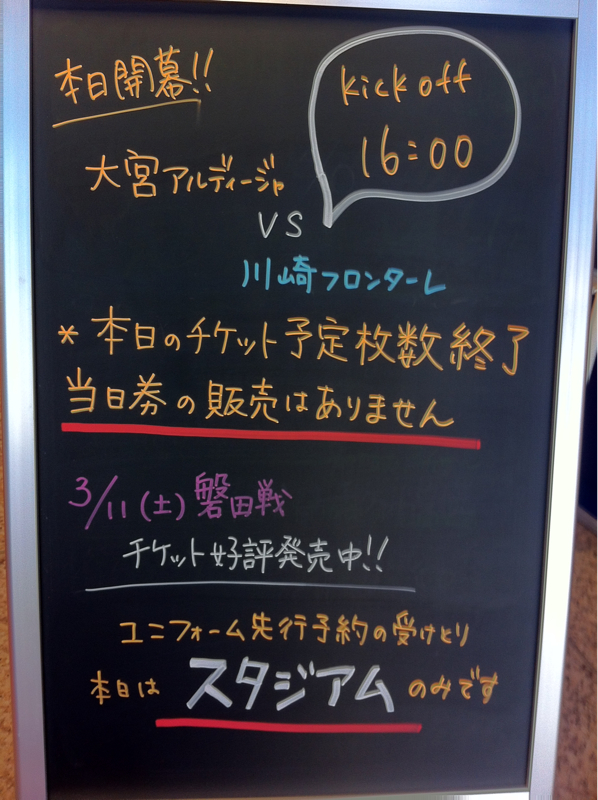 本日開幕!!
kick off
16:00
大宮アルディージャ
VS
川崎フロンターレ
* 本日のチケット予定枚数終了
当日券の販売はありません
3/11(土)磐田戦
チケット好評発売中!!
ユニフォーム先行予約の受けとり
本日は スタジアム のみです